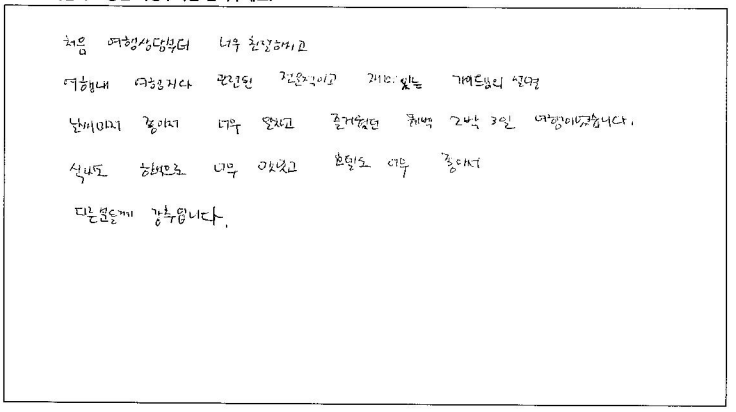 처음 여행상담부터 너무 친절하시고
여행내 여행지다 관련된 전문적이고 재미있는 가이드님의 설명
날씨마저 좋아서 너무 알차고 즐거웠던 퀘벡 2박 3일 여행이었습니다.
식사도 한식으로 너무 맛있고 호텔도 너무 좋아서
다른분들께 강추입니다.